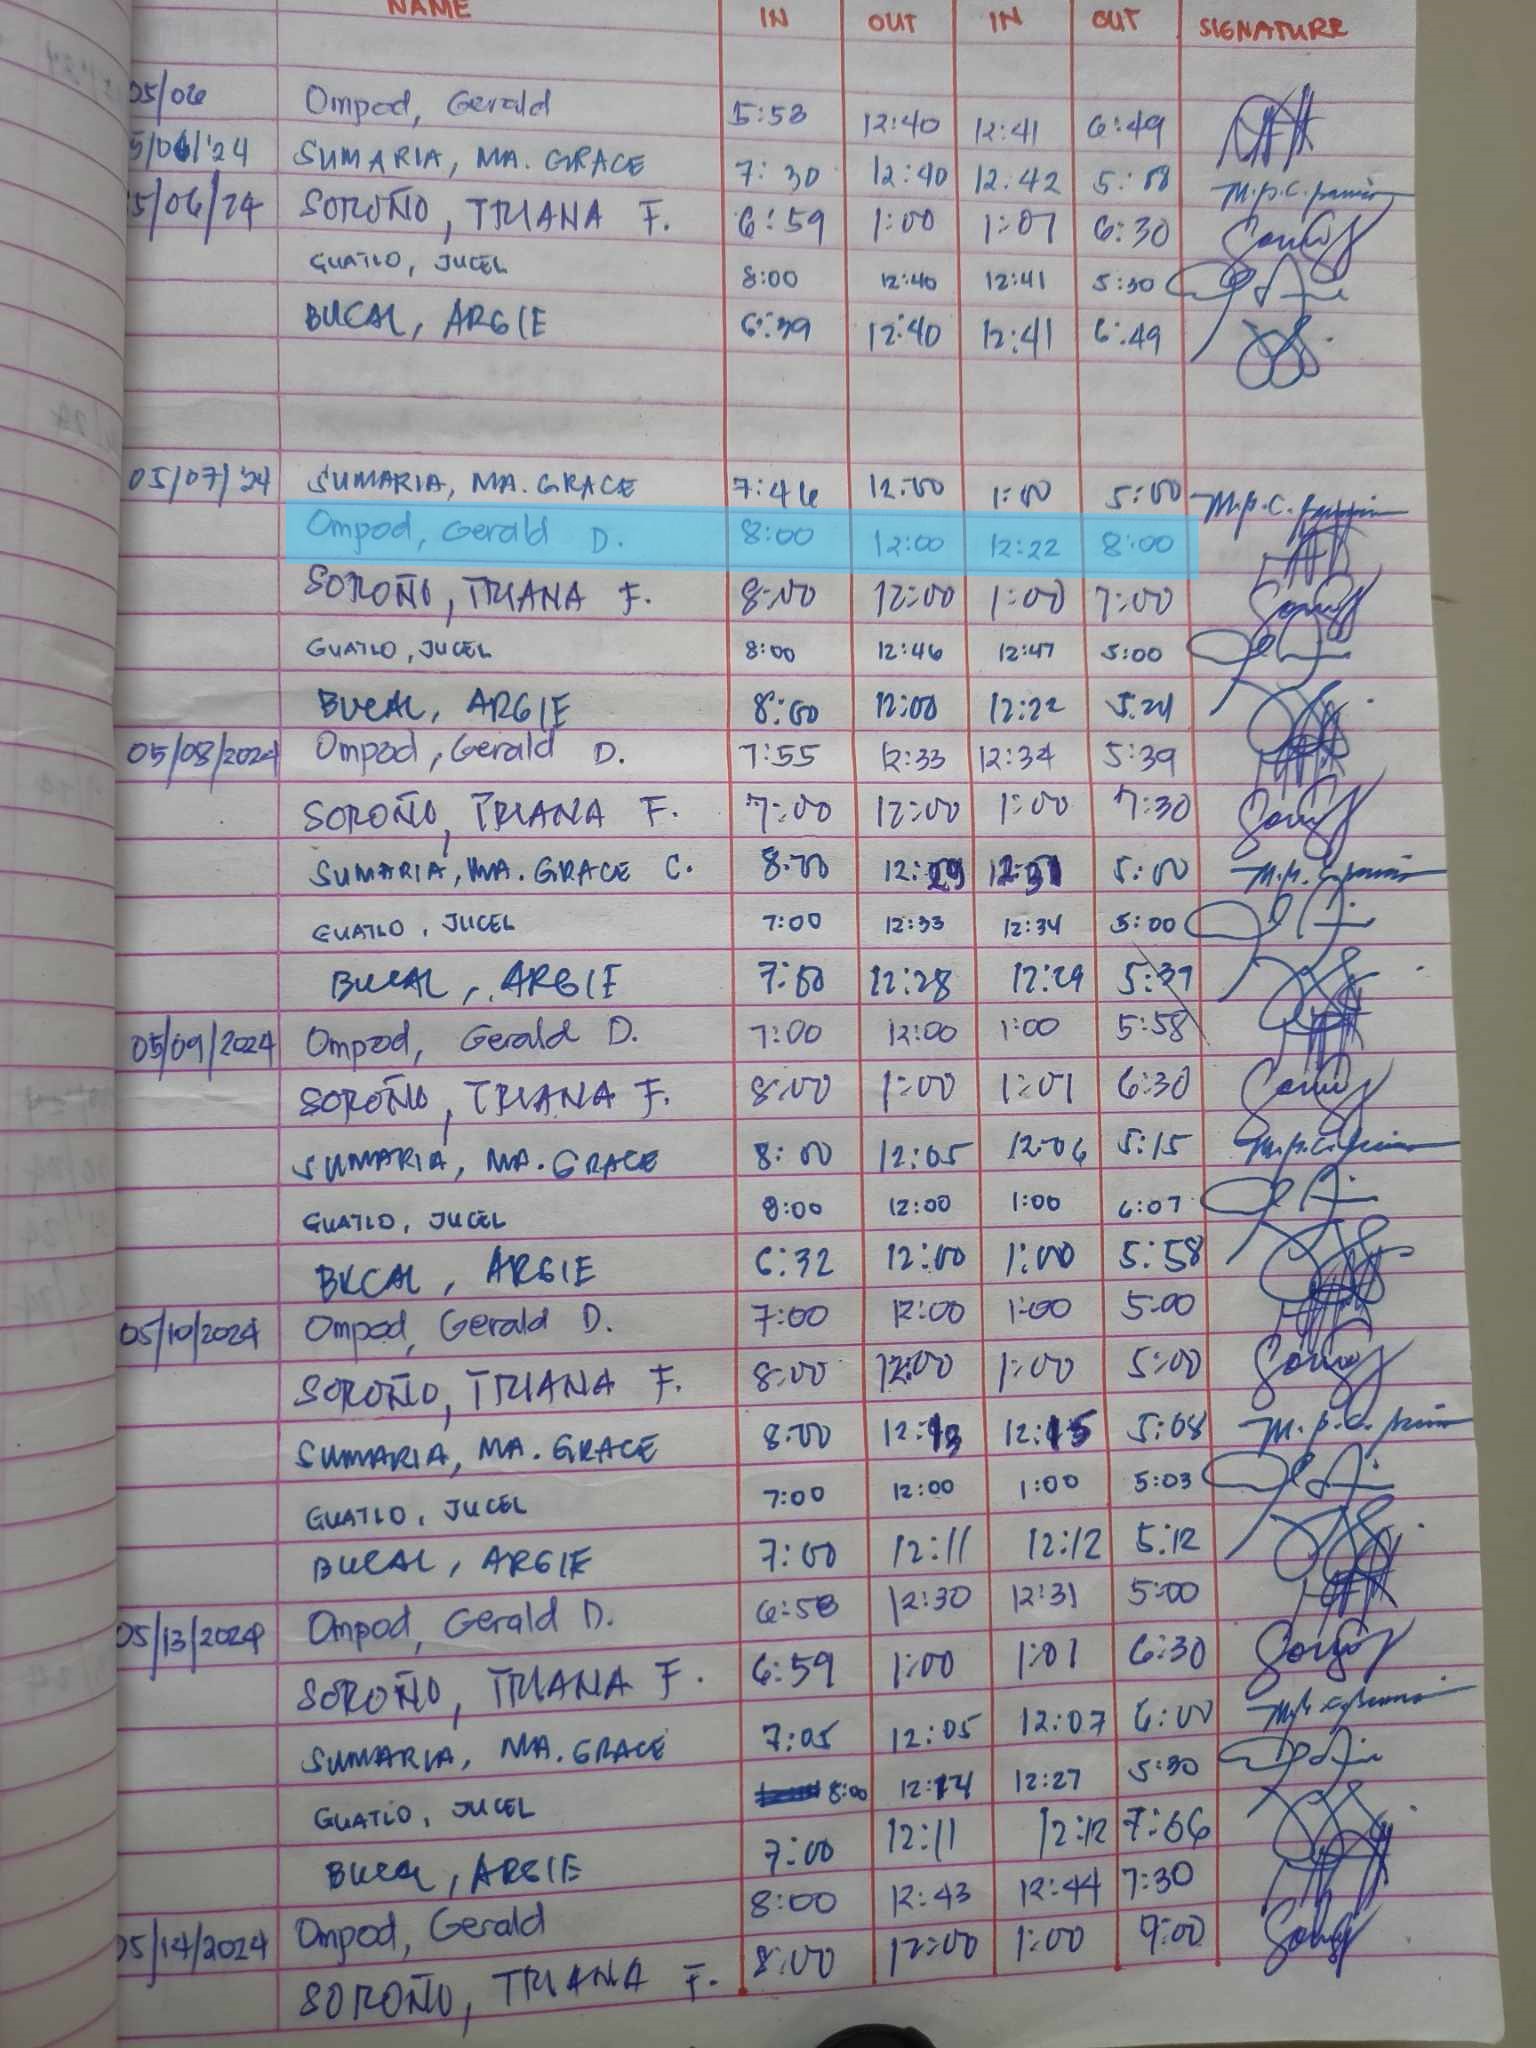 NAME IN OUT IN OUT SIGNATURE
05/06 Ompod, Gerald 5:53 12:40 12:41 6:49
5/06/'24 SUMARIA, MA. GRACE 7:30 12:40 12:42 5:08
5/06/24 SOROÑO, TRIANA F. 6:59 1:00 1:07 6:30
GUATLO, JUCEL 8:00 12:40 12:41 5:30
BUCAL, ARGIE 6:39 12:40 12:41 6:49
05/07/'24 SUMARIA, MA. GRACE 7:46 12:00 1:00 5:00
Ompod, Gerald D. 8:00 12:00 12:22 8:00
SOROÑO, TRIANA F. 8:00 12:00 1:00 7:00
GUATLO, JUCEL 8:00 12:46 12:47 5:00
BUCAL, ARGIE 8:00 12:00 12:22 5:24
05/08/2024 Ompod, Gerald D. 7:55 12:33 12:34 5:39
SOROÑO, TRIANA F. 7:00 12:00 1:00 7:30
SUMARIA, MA. GRACE C. 8:00 12:29 12:31 5:00
GUATLO, JUCEL 7:00 12:33 12:34 5:00
BUCAL, ARGIE 7:00 12:28 12:29 5:37
05/09/2024 Ompod, Gerald D. 7:00 12:00 1:00 5:58
SOROÑO, TRIANA F. 8:00 1:00 1:01 6:30
SUMARIA, MA. GRACE 8:00 12:05 12:06 5:15
GUATLO, JUCEL 8:00 12:00 1:00 6:07
BUCAL, ARGIE 6:32 12:00 1:00 5:58
05/10/2024 Ompod, Gerald D. 7:00 12:00 1:00 5:00
SOROÑO, TRIANA F. 8:00 12:00 1:00 5:00
SUMARIA, MA. GRACE 8:00 12:13 12:15 5:08
GUATLO, JUCEL 7:00 12:00 1:00 5:03
BUCAL, ARGIE 7:00 12:11 12:12 5:12
05/13/2024 Ompod, Gerald D. 6:58 12:30 12:31 5:00
SOROÑO, TRIANA F. 6:59 1:00 1:01 6:30
SUMARIA, MA. GRACE 7:05 12:05 12:07 6:00
GUATLO, JUCEL 8:00 12:14 12:27 5:30
BUCAL, ARGIE 7:00 12:11 12:12 7:06
05/14/2024 Ompod, Gerald 8:00 12:43 12:44 7:30
SOROÑO, TRIANA F. 8:00 12:00 1:00 9:00